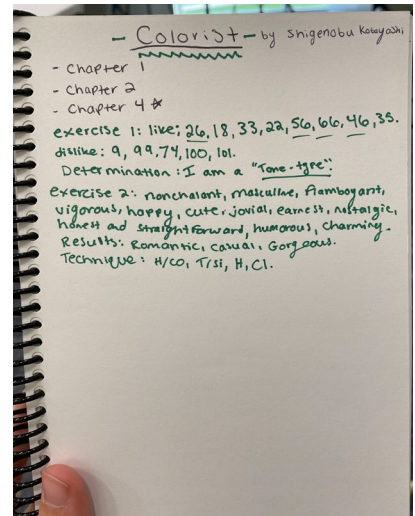 - Colorist - by Shigenobu Kobayashi
- Chapter 1
- Chapter 2
- Chapter 4 ☆
exercise 1: like; 26, 18, 33, 22, 56, 66, 46, 35.
dislike: 9, 99.74, 100, 101.
Determination: I am a "Tone-type".
exercise 2: nonchalant, masculine, flamboyant,
vigorous, happy, cute, jovial, earnest, nostalgic,
honest and straight forward, humorous, charming.
Results: Romantic, casual, Gorgeous.
Technique: H/CO, T/Si, H, Cl.